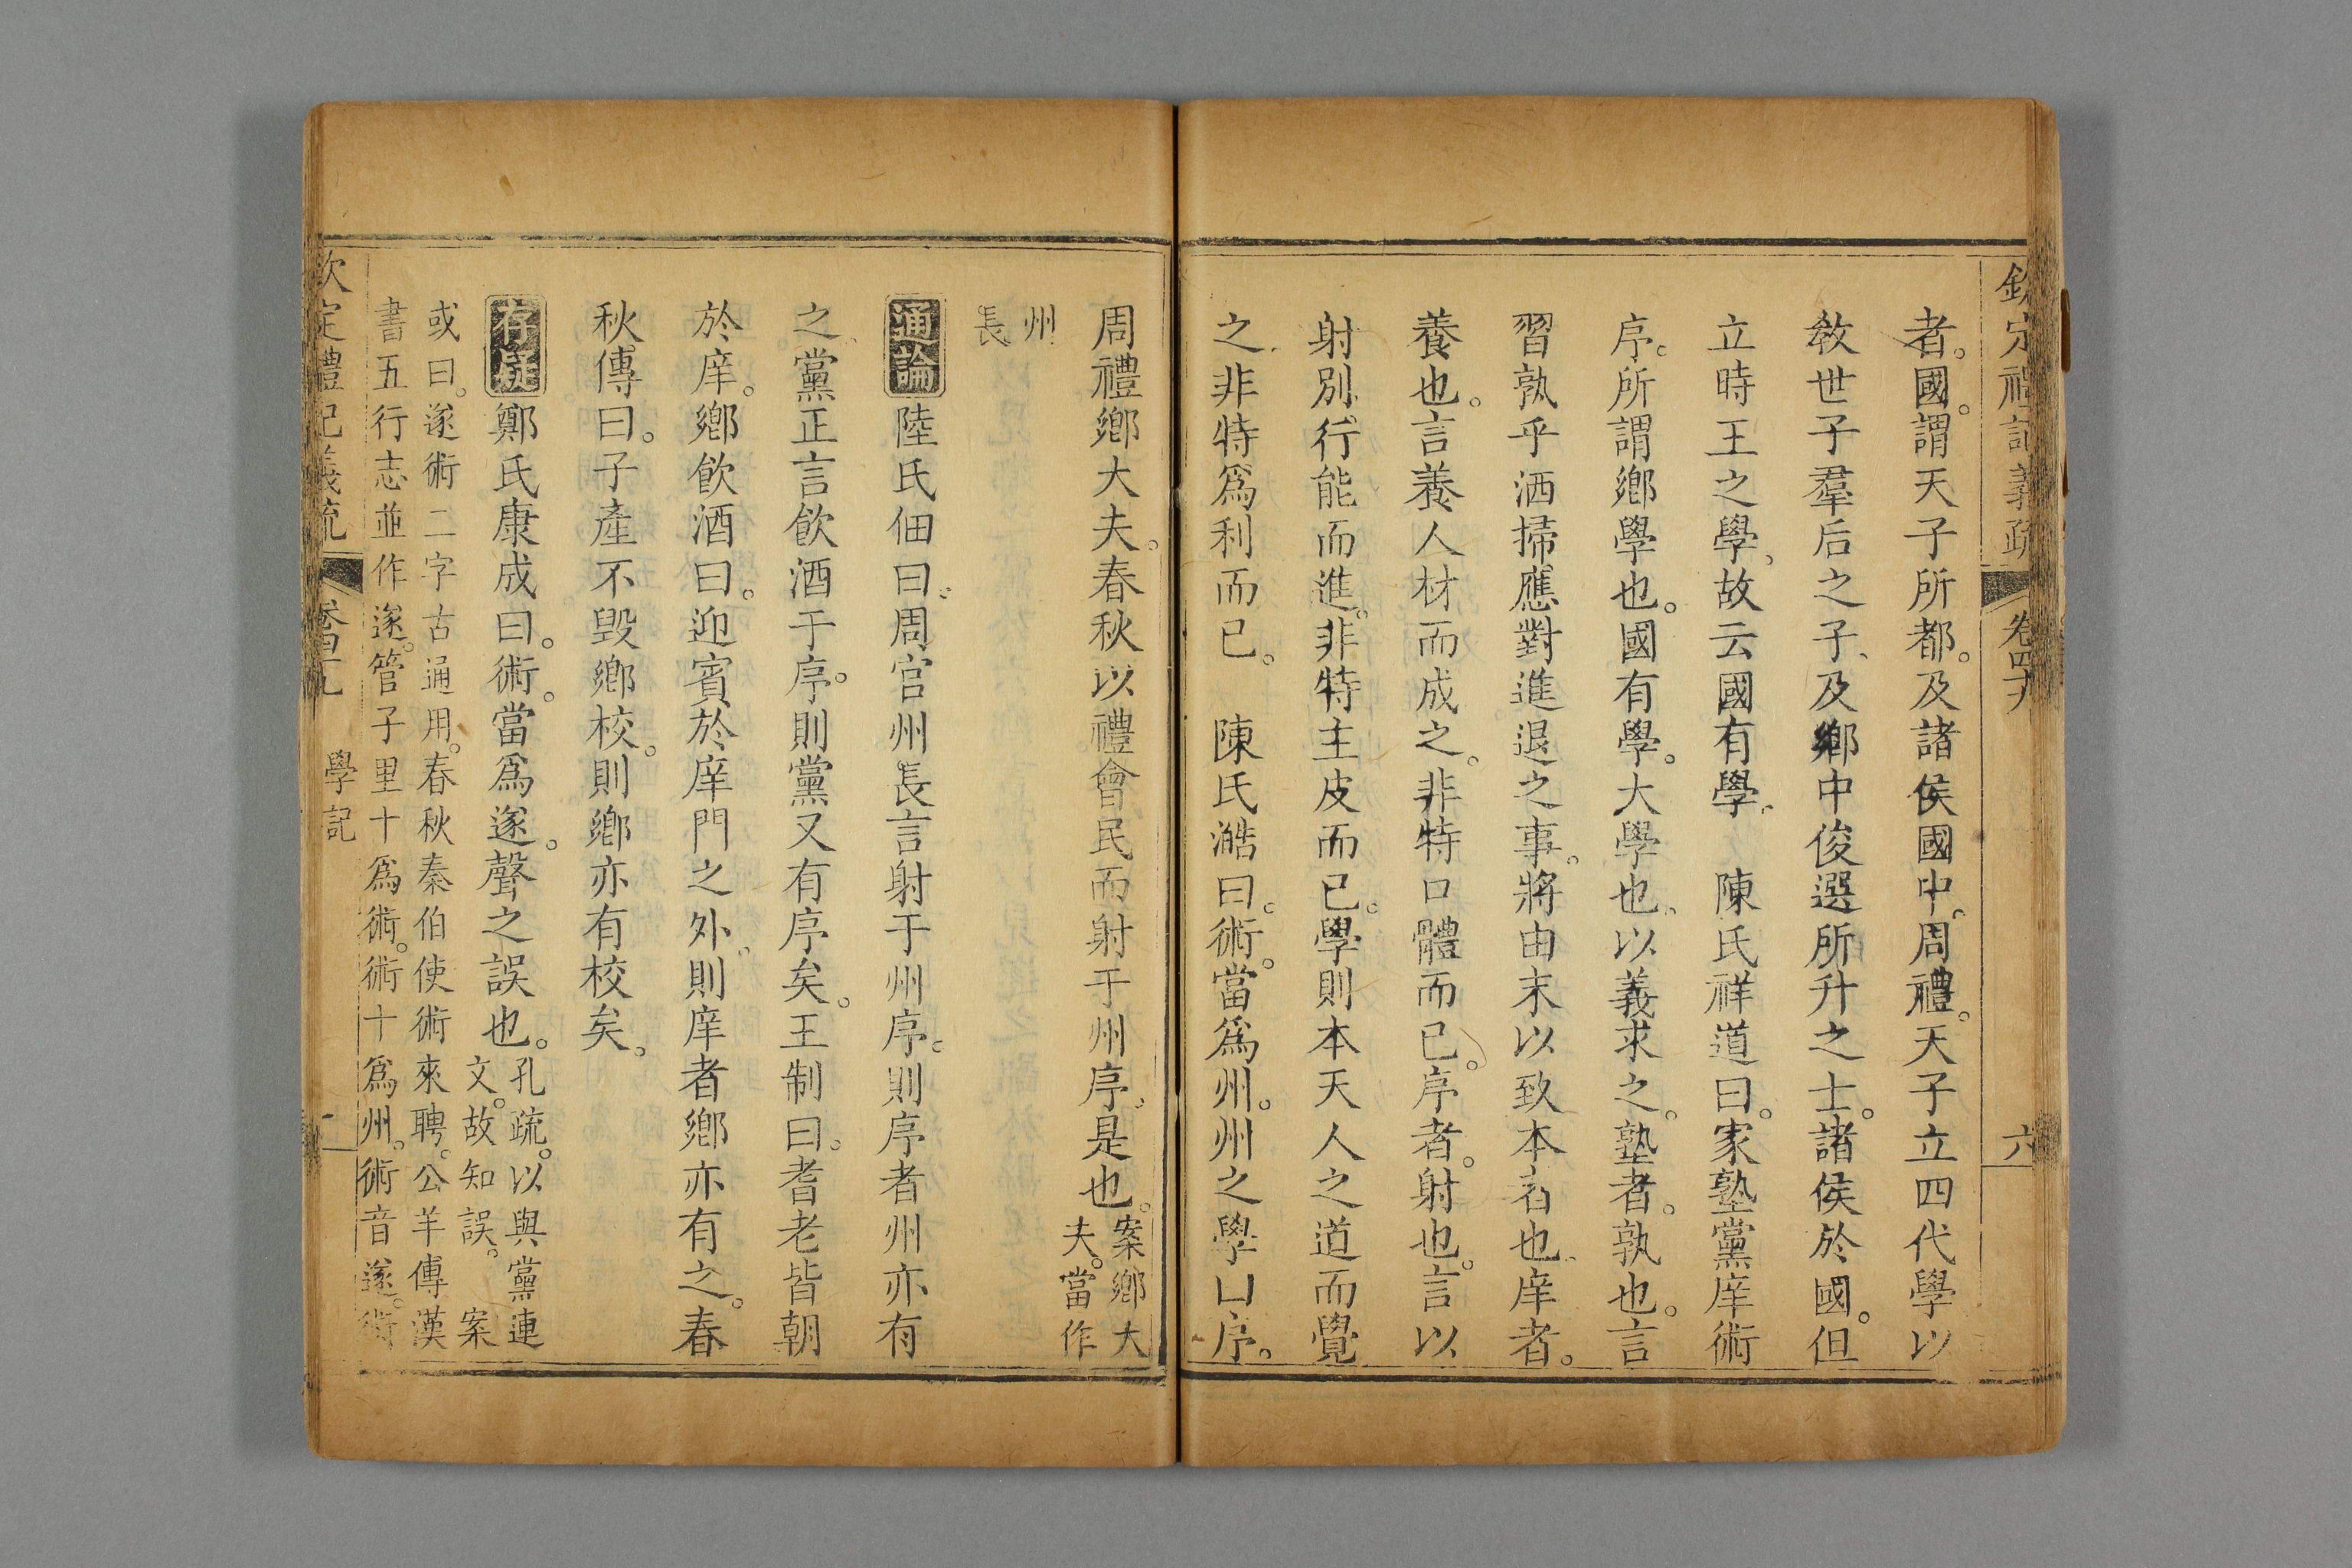 欽定禮記義疏 卷四十九 六
者。國。謂天子所都。及諸侯國中。周禮。天子立四代學以
敎世子羣后之子、及鄕中俊選所升之士。諸侯於國。但
立時王之學、故云國有學、 陳氏祥道曰。家塾黨庠術
序。所謂鄕學也。國有學。大學也、以義求之。塾者。孰也。言
習孰乎洒掃應對進退之事。將由末以致本者也、庠者。
養也。言養人材而成之。非特口體而已。序者。射也。言以
射別行能而進。非特主皮而已。學則本天人之道而覺
之、非特爲利而已。 陳氏澔曰。術。當爲州。州之學曰序。
周禮鄕大夫。春秋以禮會民而射于州序、是也。
案鄕大
夫。當作
州
長
通論 陸氏佃曰。周官州長言射于州序。則序者州亦有
之、黨正言飮酒于序。則黨又有序矣。王制曰。耆老皆朝
於庠。鄕飮酒曰。迎賓於庠門之外、則庠者鄕亦有之。春
秋傳曰。子產不毀鄕校。則鄕亦有校矣。
存疑 鄭氏康成曰。術。當爲遂。聲之誤也。
孔疏。以與黨連
文。故知誤。 案
或曰。遂術二字古通用。春秋秦伯使術來聘。公羊傳漢
書五行志並作遂。管子里十爲術。術十爲州。術音遂。術
欽定禮記義疏 卷四十九 學記